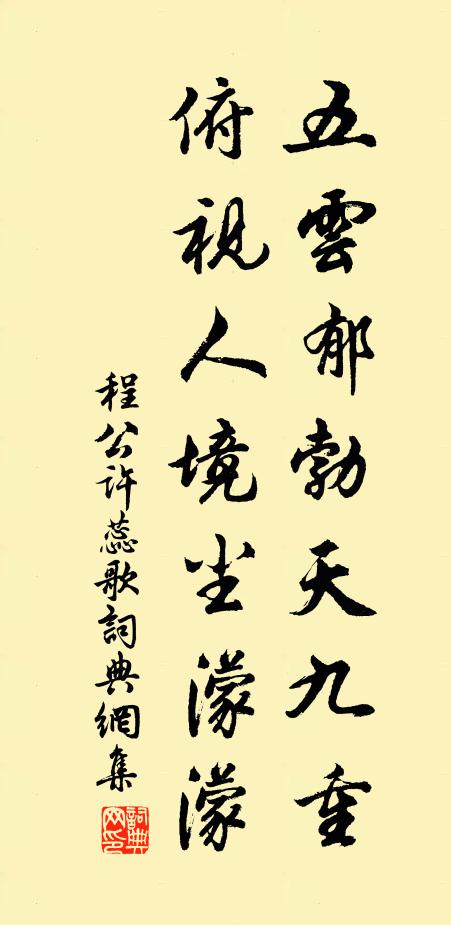 五雲郁勃天九重
俯視人境尘濛濛
程公许蕊歌詞典網集
詞典網印